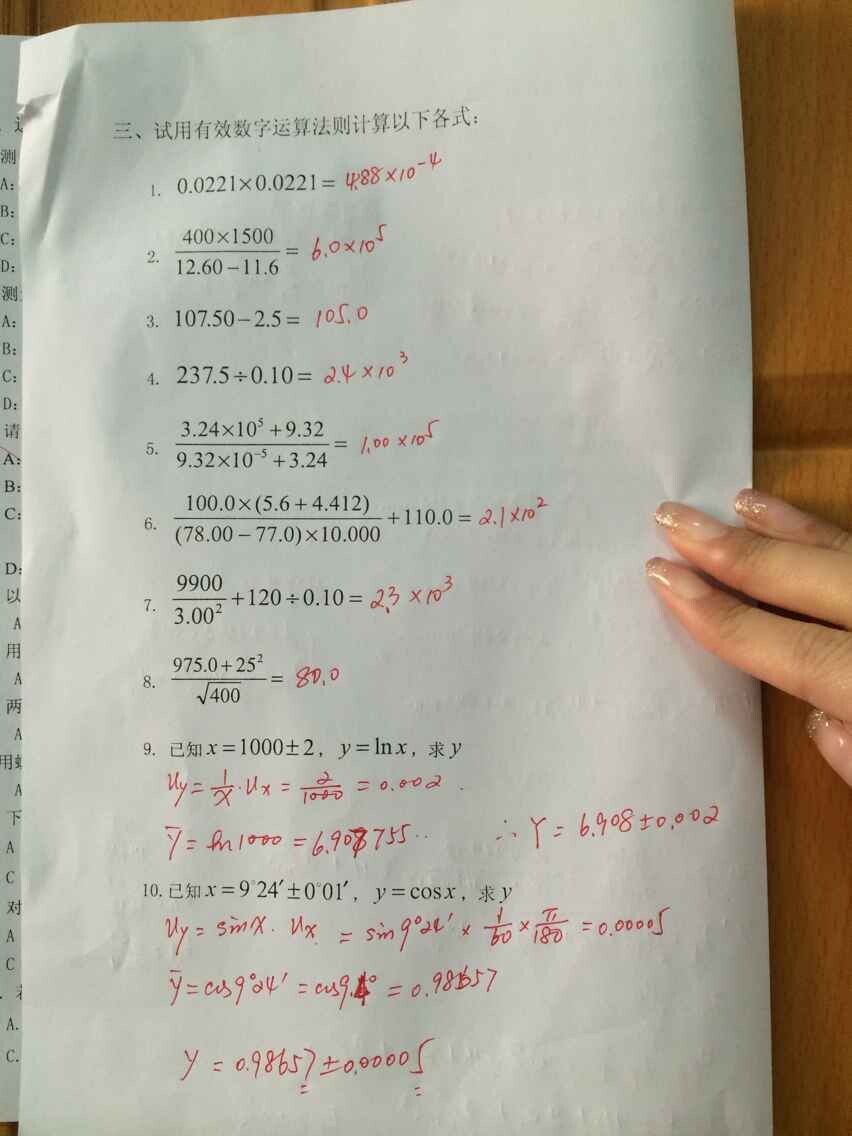 三、试用有效数字运算法则计算以下各式:
1. 0.0221×0.0221= 4.88×10⁻⁴
2. (400×1500)/(12.60−11.6) = 6.0×10⁵
3. 107.50−2.5= 105.0
4. 237.5÷0.10= 2.4×10³
5. (3.24×10⁵+9.32)/(9.32×10⁻⁵+3.24) = 1.00×10⁵
6. (100.0×(5.6+4.412))/((78.00−77.0)×10.000) +110.0= 2.1×10²
7. 9900/3.00² +120÷0.10= 2.3×10³
8. (975.0+25²)/√400 = 80.0
9. 已知x=1000±2，y=lnx，求y
Uy=1/x·Ux=2/1000=0.002
ȳ=ln1000=6.907755·· ∴Y=6.908±0.002
10. 已知x=9°24′±0°01′，y=cosx，求y
Uy=sinx·Ux=sin9°24′×1/60×π/180=0.00005
ȳ=cos9°24′=cos9.4°=0.98657
y=0.98657±0.00005
测
A:
B:
C:
D:
测
A:
B:
C:
D:
请
A:
B:
C:
D:
以
A
用
A
两
A
用
A
下
A
C
对
A
C
A.
C.